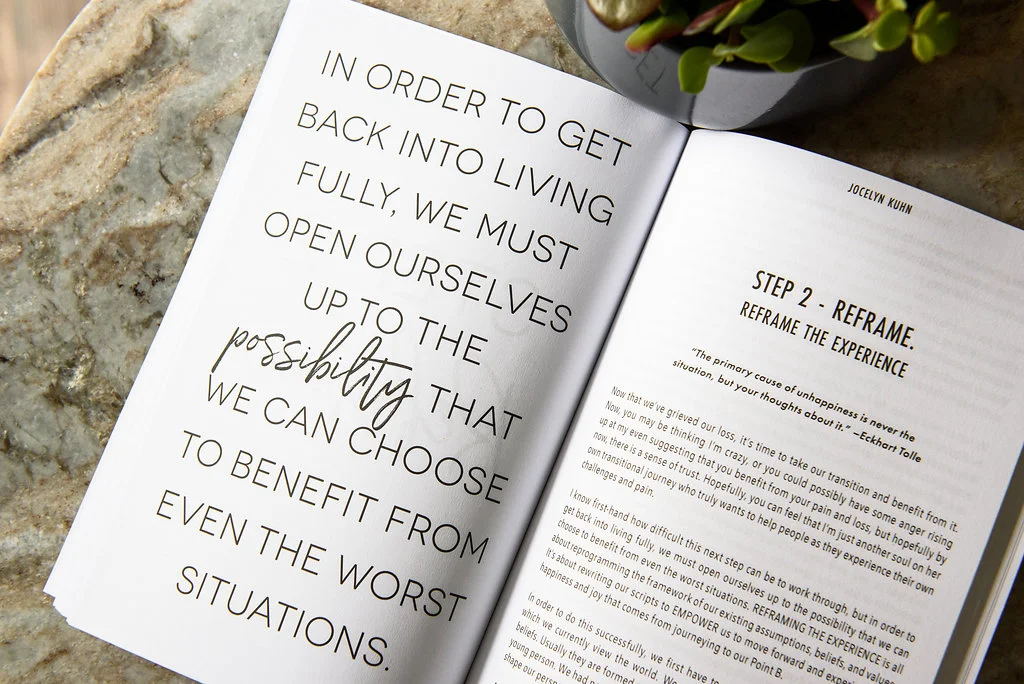 IN ORDER TO GET
BACK INTO LIVING
FULLY, WE MUST
OPEN OURSELVES
UP TO THE
possibility THAT
WE CAN CHOOSE
TO BENEFIT FROM
EVEN THE WORST
SITUATIONS.
JOCELYN KUHN
STEP 2 - REFRAME.
REFRAME THE EXPERIENCE
"The primary cause of unhappiness is never the
situation, but your thoughts about it." —Eckhart Tolle
Now that we've grieved our loss, it's time to take our transition and benefit from it.
Now, you may be thinking I'm crazy, or you could possibly have some anger rising
up at my even suggesting that you benefit from your pain and loss, but hopefully by
now, there is a sense of trust. Hopefully, you can feel that I'm just another soul on her
own transitional journey who truly wants to help people as they experience their own
challenges and pain.
I know first-hand how difficult this next step can be to work through, but in order to
get back into living fully, we must open ourselves up to the possibility that we can
choose to benefit from even the worst situations. REFRAMING THE EXPERIENCE is all
about reprogramming the framework of our existing assumptions, beliefs, and values.
It's about rewriting our scripts to EMPOWER us to move forward and experience
happiness and joy that comes from journeying to our Point B.
In order to do this successfully, we first have to
which we currently view the world. We
beliefs. Usually they are formed
young person. We had
shape our